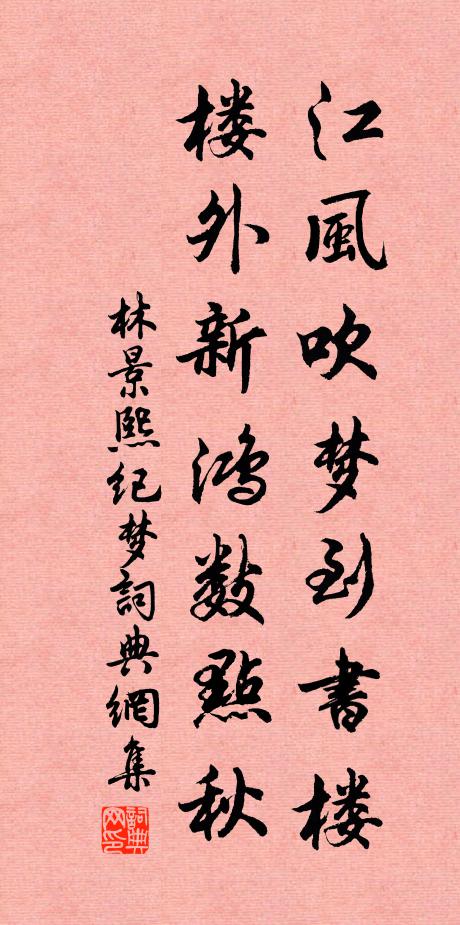 江風吹梦到書楼
楼外新鸿数點秋
林景熙纪梦詞典網集
詞典网印